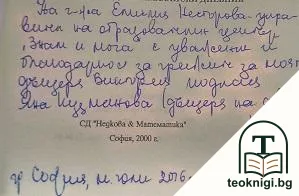 На г-жа Емилия Несторова - упра-
вител на образователен център
"Знам и мога" с уважение и
благодарност за грижите за моята
дъщеря Виктория
Яна Кузманова (дъщеря на
СД "Недкова & Математика"
София, 2000 г.
гр София, м. юли 2016
teoknigi.bg